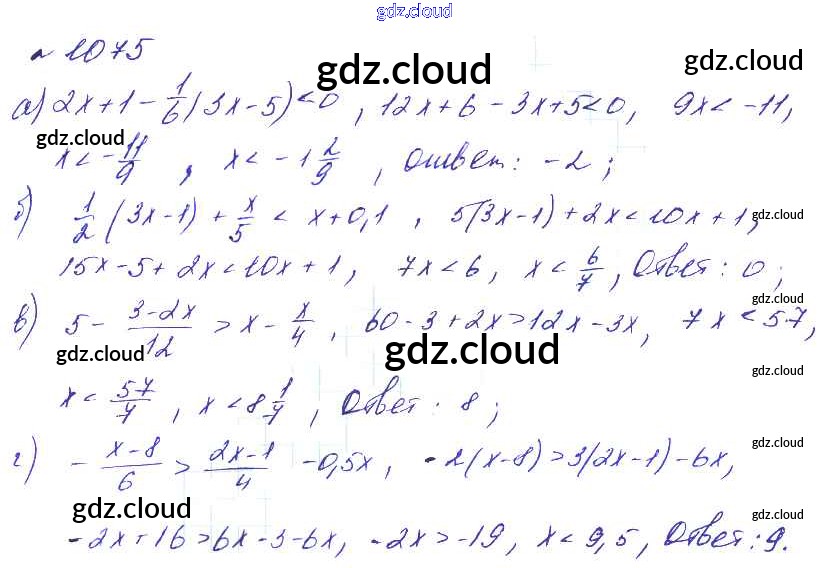 gdz.cloud
№ 1075
gdz.cloud gdz.cloud
а) 2x+1 - 1/6(3x-5)<0, 12x+6-3x+5<0, 9x<-11,
gdz.cloud
x<-11/9, x<-1 2/9, Ответ: -2;
б) 1/2(3x-1)+x/5 < x+0,1, 5(3x-1)+2x<10x+1,
gdz.cloud
15x-5+2x<10x+1, 7x<6, x<6/7, Ответ: 0;
gdz.cloud
gdz.cloud
в) 5 - (3-2x)/12 > x - x/4, 60-3+2x>12x-3x, 7x<57,
gdz.cloud gdz.cloud
gdz.cloud
x<57/7, x<8 1/7, Ответ: 8;
г) -(x-8)/6 > (2x-1)/4 - 0,5x, -2(x-8)>3(2x-1)-6x,
gdz.cloud
gdz.cloud gdz.cloud
-2x+16>6x-3-6x, -2x>-19, x<9,5, Ответ: 9.